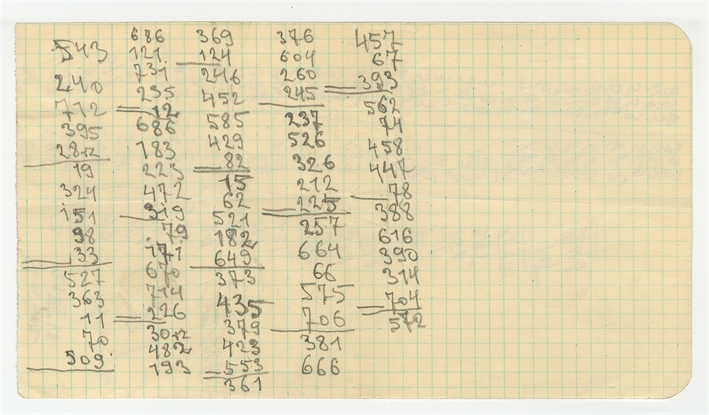 543
240
712
395
2812
19
324
151
98
33
527
363
11
70
509
686
121
731
235
12
686
183
223
472
319
79
171
670
714
226
3012
482
193
369
124
246
452
585
429
82
15
62
521
182
649
373
435
379
423
553
361
376
604
260
245
237
526
326
212
225
257
664
66
575
706
381
666
457
67
393
562
74
458
447
78
388
616
390
314
704
572